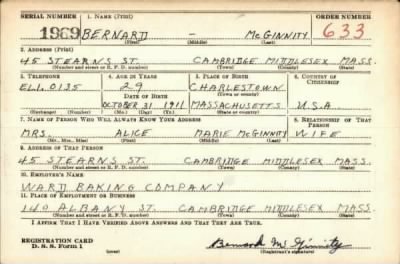 SERIAL NUMBER 1. NAME (Print) ORDER NUMBER
1969 BERNARD - McGINNITY 633
(First) (Middle) (Last)
2. ADDRESS (Print)
45 STEARNS ST. CAMBRIDGE MIDDLESEX MASS.
(Number and street or R. F. D. number) (Town) (County) (State)
3. TELEPHONE 4. AGE IN YEARS 5. PLACE OF BIRTH 6. COUNTRY OF CITIZENSHIP
29 CHARLESTOWN
ELI. 0135 DATE OF BIRTH (Town or county)
OCTOBER 31 1911 MASSACHUSETTS U.S.A
(Exchange) (Number) (Mo.) (Day) (Yr.) (State or country)
7. NAME OF PERSON WHO WILL ALWAYS KNOW YOUR ADDRESS 8. RELATIONSHIP OF THAT PERSON
MRS. ALICE MARIE McGINNITY WIFE
(Mr., Mrs., Miss) (First) (Middle) (Last)
9. ADDRESS OF THAT PERSON
45 STEARNS ST. CAMBRIDGE MIDDLESEX MASS.
(Number and street or R. F. D. number) (Town) (County) (State)
10. EMPLOYER'S NAME
WARD BAKING COMPANY
11. PLACE OF EMPLOYMENT OR BUSINESS
140 ALBANY ST CAMBRIDGE MIDDLESEX MASS.
(Number and street or R. F. D. number) (Town) (County) (State)
I AFFIRM THAT I HAVE VERIFIED ABOVE ANSWERS AND THAT THEY ARE TRUE.
REGISTRATION CARD
D. S. S. Form 1 Bernard McGinnity
(Registrant's signature)